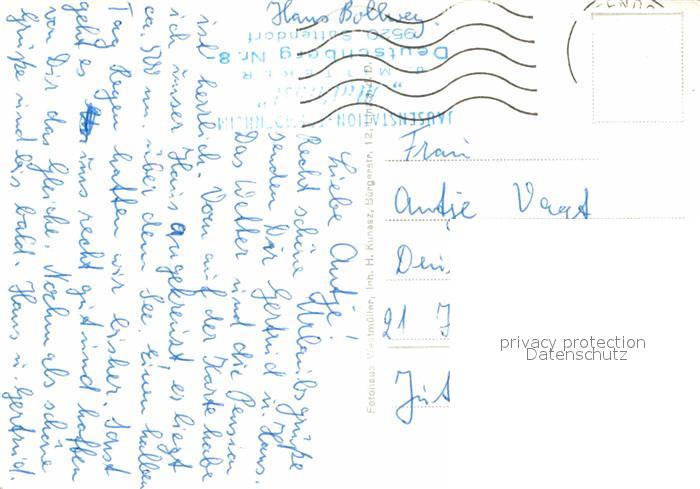 Hans Bollwey.
JAUSENSTATION-
"
u. M I T T E R E R
Deutschberg Nr. 8
9520 Sattendorf
Liebe Antje!
Recht schöne Urlaubsgrüße
senden Dir Gertrud u. Hans.
Das Wetter und die Pension
ist herrlich. Vorn auf der Karte habe
ich unser Haus angekreuzt es liegt
ca. 500 m. über dem See. Einen halben
Tag Regen hatten wir bisher. Sonst
geht es uns recht gut und hoffen
von Dir das Gleiche. Nochmals schöne
Grüße und bis bald. Hans u. Gertrud.
Fotohaus Westmüller, Inh. H. Kunasz, Bürgerstr. 12,
Frau
Antje Vagt
21
privacy protection
Datenschutz